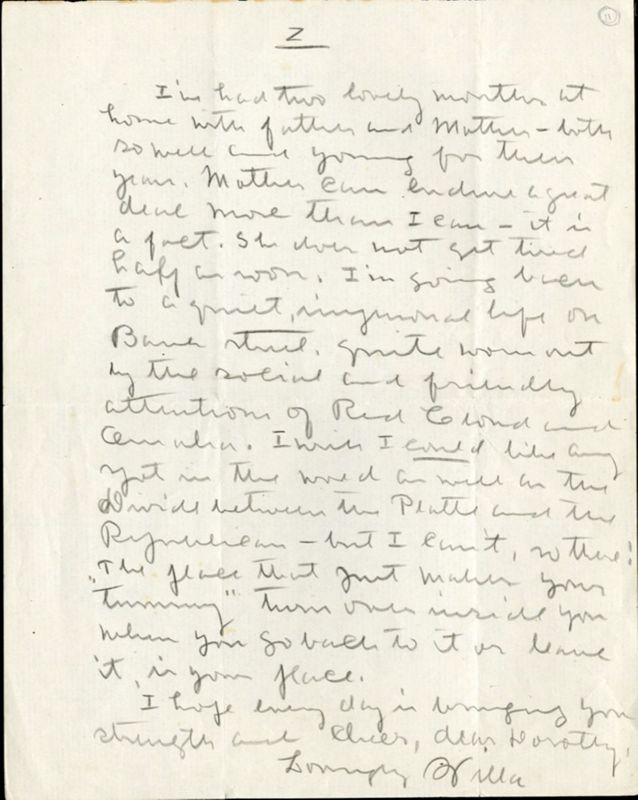 11
2
I've had two lovely months at
home with father and Mother – both
so well and young for their
years. Mother can endure a great
deal more than I can – it is
a fact. She does not get tired
half as soon. I'm going back
to a quiet, impersonal life on
Bank street, quite worn out
by the social and friendly
attentions of Red Cloud and
Omaha. I wish I could like any
spot in the world as well as the
Divide between the Platte and the
Republican – but I can't, so there!
"The place that just makes your
tummy" turn over inside you
when you go back to it or leave
it, is your place.
I hope every day is bringing you
strength and cheer, dear Dorothy.
Lovingly Willa